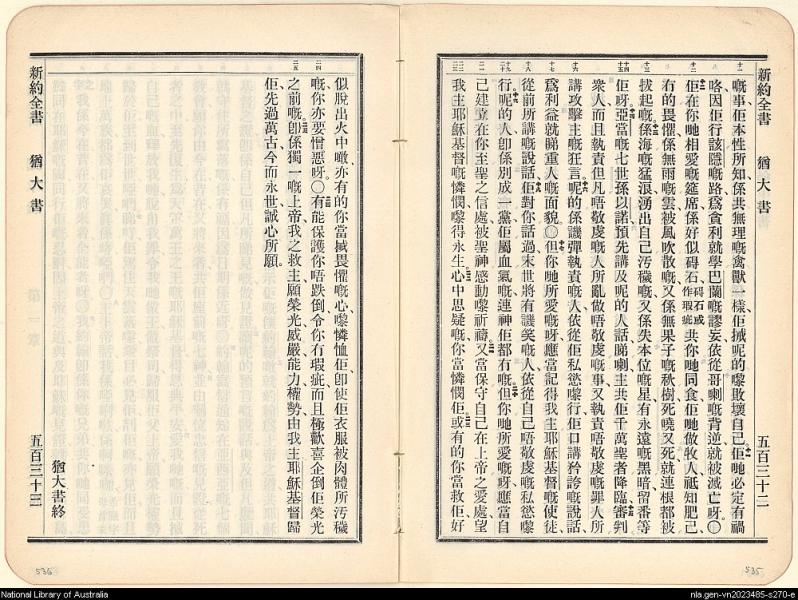 新約全書 猶大書 五百三十二
嘅事、佢本性所知係共無理嘅禽獸一樣、佢摵呢的嚟敗壞自己、佢哋必定有禍
咯、因佢行該隱嘅路、爲貪利就學巴蘭嘅謬妄、依從哥喇嘅背逆、就被滅亡呀。○
佢在你哋相愛嘅筵席、係好似碍石碍石或作瑕疵共你哋同食、佢哋做牧人祗知肥己、
有的畏懼、係無雨嘅雲、被風吹散嘅、又係無果子嘅秋樹、死曉又死、就連根都被
拔起嘅、係海嘅猛浪、湧出自己汚穢嘅、又係失本位嘅星、有永遠嘅黑暗留番等
佢呀、亞當嘅七世孫以諾、預先講及呢的人話、睇喇、主共佢千萬聖者降臨、審判
衆人、而且執責但凡唔敬虔嘅人、所亂做唔敬虔嘅事、又執責唔敬虔嘅罪人、所
講攻擊主嘅狂言。呢的係譏彈執責嘅人、依從佢私慾嚟行、佢口講矜誇嘅說話、
爲利益就睇重人嘅面貌。○但你哋所愛嘅呀、應當記得我主耶穌基督嘅使徒、
從前所講嘅說話、佢對你話、過末世將有譏笑嘅人、依從自己唔敬虔嘅私慾嚟
行。呢的人即係別成一黨、佢屬血氣嘅、連神佢都冇嘅。但你哋所愛嘅呀、應當自
己建立在你至聖之信處、被聖神感動嚟祈禱、又當保守自己在上帝之愛處、望
我主耶穌基督嘅憐憫、嚟得永生。心中思疑嘅、你當憐憫佢、或有的你當救佢好
似脫出火中噉、亦有的你當摵畏懼嘅心嚟憐恤佢、即使佢衣服被肉體所汚穢
嘅、你亦要憎惡呀。○有能保護你唔跌倒、令你有瑕疵、而且極歡喜企倒佢榮光
之前嘅、即係獨一嘅上帝、我之救主、願榮光、威嚴、能力、權勢、由我主耶穌基督歸
佢、先過萬古、今而永世、誠心所願。
猶大書終
新約全書 猶大書 五百三十三
536
535
National Library of Australia
nla.gen-vn2023485-s270-e